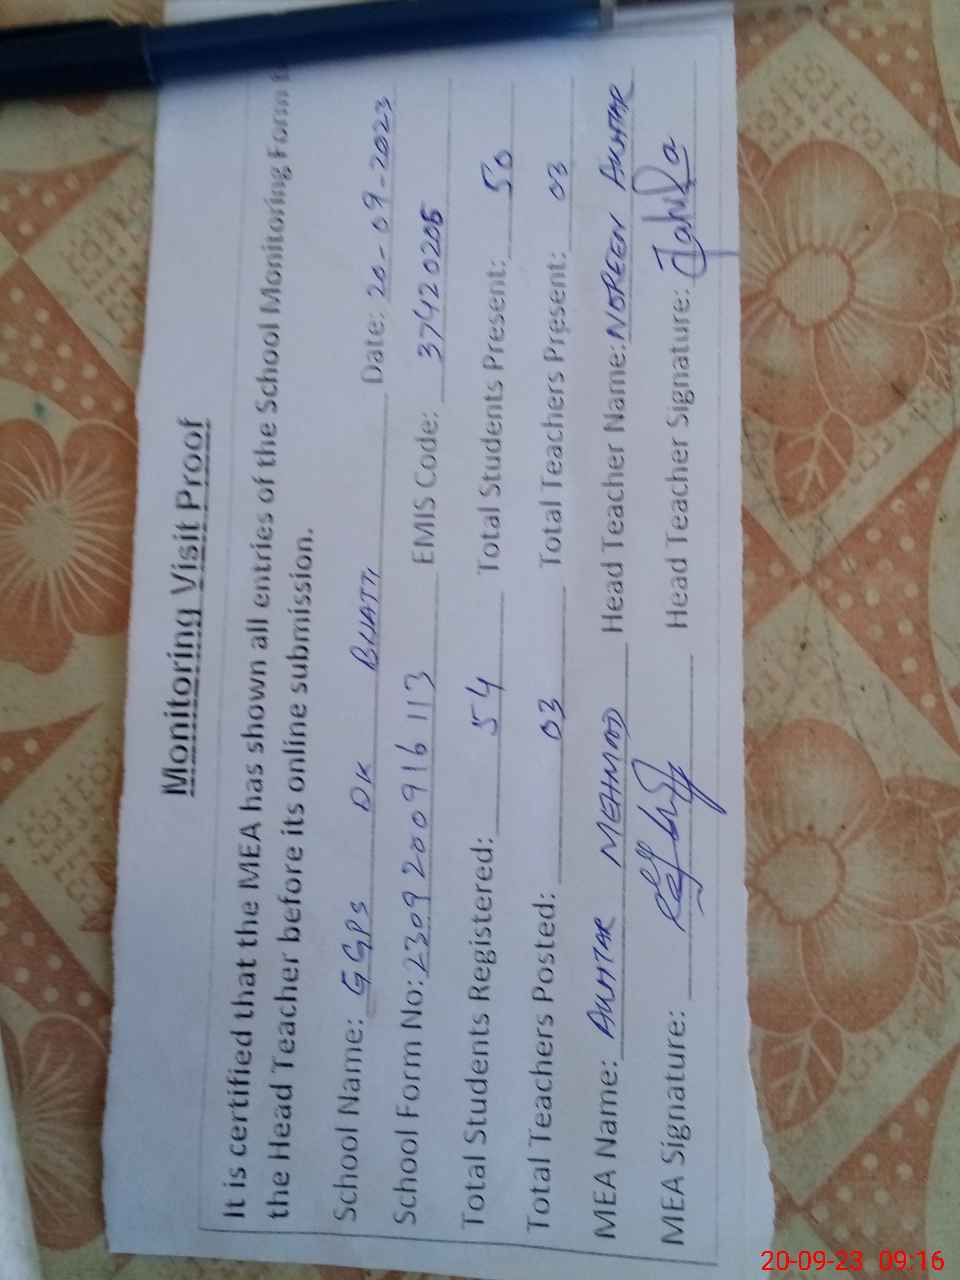 Monitoring Visit Proof
It is certified that the MEA has shown all entries of the School Monitoring Form
the Head Teacher before its online submission.
School Name: GGPS DK BHATTI Date: 20-09-2023
School Form No: 2309200916113 EMIS Code: 37420206
Total Students Registered: 54 Total Students Present: 50
Total Teachers Posted: 03 Total Teachers Present: 03
MEA Name: AKHTAR MEHMOOD Head Teacher Name: NOREEN AKHTAR
MEA Signature: Head Teacher Signature:
20-09-23 09:16